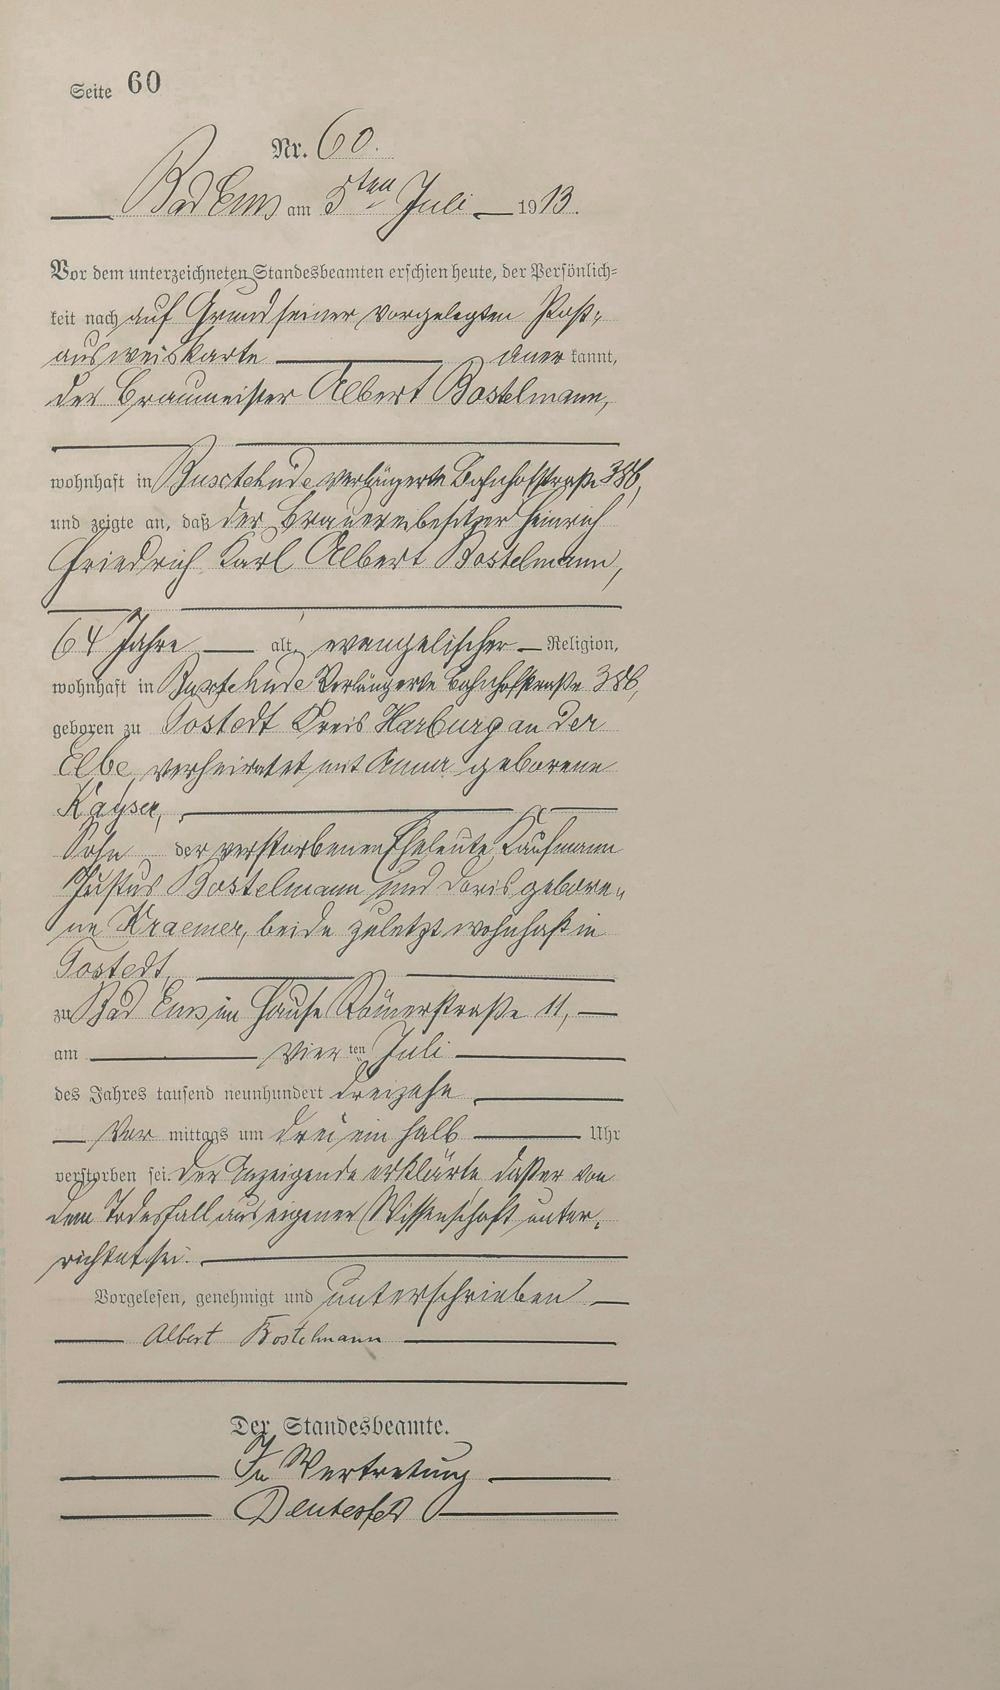 Seite 60
Nr. 60.
Bad Ems am 5ten Juli 1913.
Vor dem unterzeichneten Standesbeamten erschien heute, der Persönlich-
keit nach auf Grund seiner vorgelegten Post-
ausweiskarte anerkannt,
der Braumeister Albert Bostelmann,
wohnhaft in Buxtehude verlängerte Bahnhofstraße
und zeigte an, daß der Brauereibesitzer Heinrich
Friedrich Karl Albert Bostelmann,
64 Jahre alt, evangelischer Religion,
wohnhaft in Buxtehude Verlängerte Bahnhofstraße
geboren zu Tostedt Kreis Harburg an der
Elbe, verheiratet mit Anna geborene
Kayser,
Sohn der verstorbenen Eheleute Kaufmann
Justus Bostelmann und Doris gebore-
ne Kraemer, beide zuletzt wohnhaft in
Tostedt,
zu Bad Ems im Hause Römerstraße 11,
am vierten Juli
des Jahres tausend neunhundert dreizehn
Vor mittags um drei ein halb Uhr
verstorben sei. Der Anzeigende erklärte, daß er von
dem Todesfall aus eigener Wissenschaft unter-
richtet sei.
Vorgelesen, genehmigt und unterschrieben
Albert Bostelmann
Der Standesbeamte.
In Vertretung